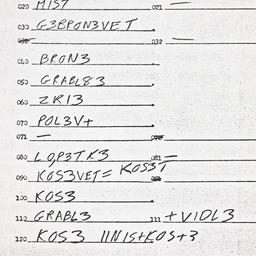 020 MIST 021 —
030 G3BRON3VET
031 032 —
040 BRON3
050 GRABL83
060 ZRI3
070 POL3V+
071 —
080 LOP3TK3 081 —
090 KOS3VET= KOS3T
100 KOS3
110 GRABL3 111 +VIDL3
120 KOS3 11N1S+KOS+3